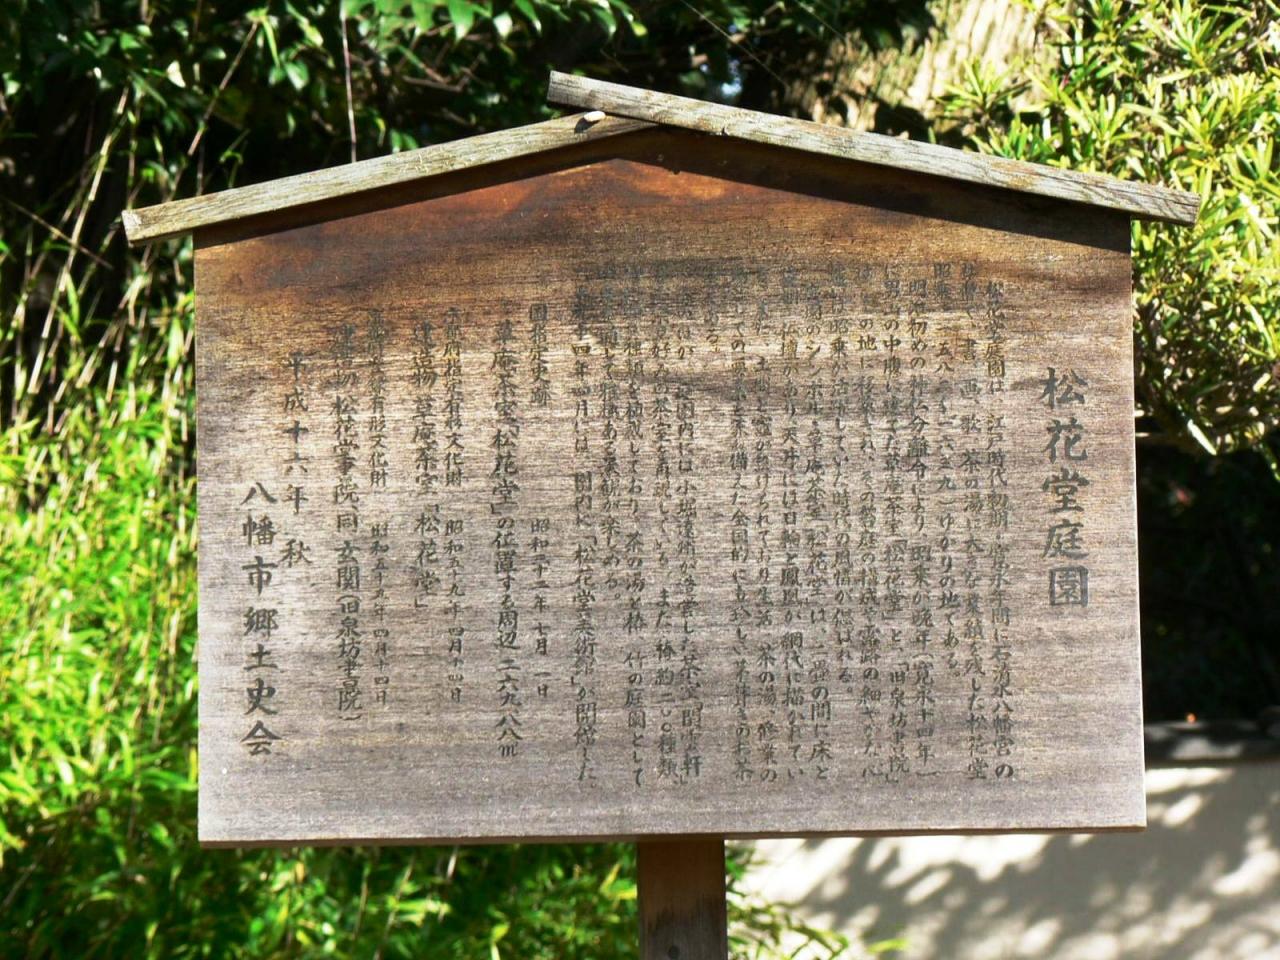 松花堂庭園
松花堂庭園は、江戸時代初期・寛永年間に石清水八幡宮の
社僧で、書、画、歌、茶の湯に大きな業績を残した松花堂
昭乗（一五八二～一六三九）ゆかりの地である。
明治初めの神仏分離令により、昭乗が晩年（寛永十四年）
に男山の中腹に建てた草庵茶室「松花堂」と、「旧泉坊書院」
は、この地に移築され、その前庭の構成や露路の細やかな心
は昭乗が活躍していた時代の風情が偲ばれる。
庭園のシンボル・草庵茶室「松花堂」は、二畳の間に床と
仏壇があり、天井には日輪と鳳凰が網代に描かれてい
る。また、土間と竈が設けられており生活、茶の湯、修業の
としての要素を兼ね備えた全国的にも珍しい茅葺きのお茶
である。
庭園内には小堀遠州が啓蒙した茶室「閑雲軒」
好みの茶室を再現している。また、椿約二〇〇種類、
種類を植栽しており、茶の湯と椿、竹の庭園として
雅趣ある景観が楽しめる。
十四年四月には、園内に「松花堂美術館」が開館した。
国指定史跡 昭和三十二年七月一日
草庵茶室「松花堂」の位置する周辺 二六九・八八㎡
京都府指定有形文化財 昭和五十九年四月十四日
建造物 草庵茶室「松花堂」
有形文化財 昭和五十五年四月十四日
建造物 松花堂書院、同玄関（旧泉坊書院）
平成十六年 秋
八幡市郷土史会